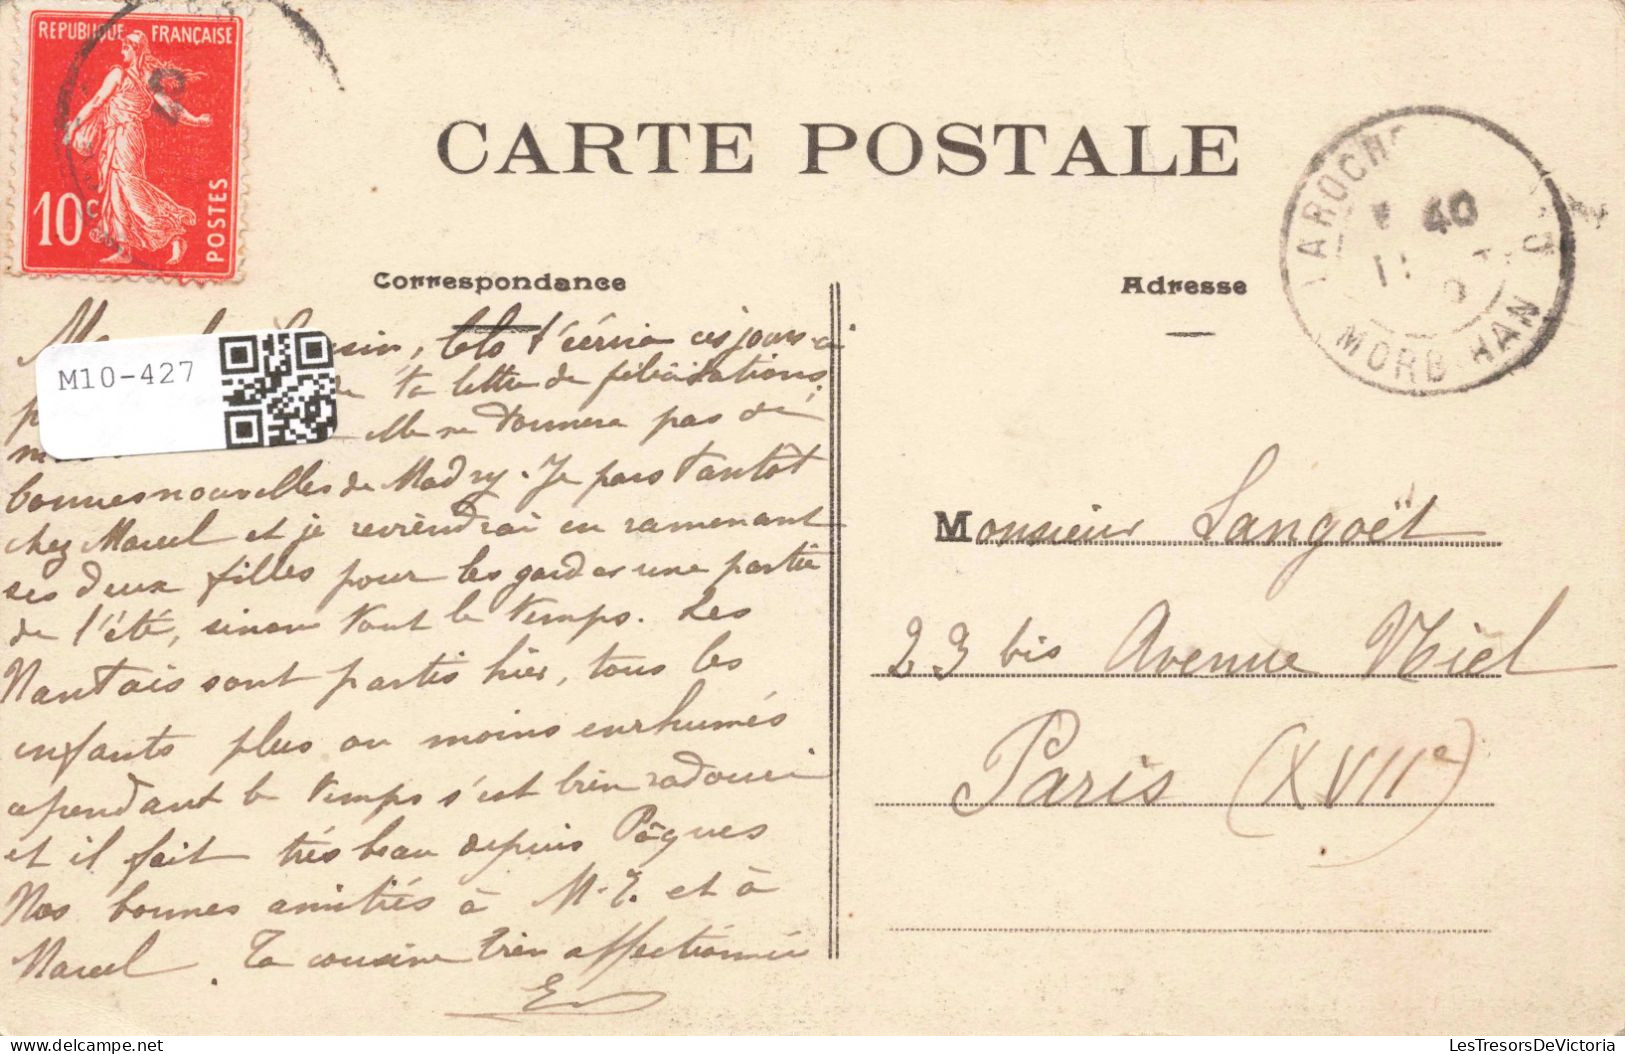 REPUBLIQUE FRANÇAISE
10c POSTES
CARTE POSTALE
Correspondance
Adresse
LAROCHE
40
MORBIHAN
M10-427
t'écrira ces jours-ci
ta lettre de félicitations,
elle ne donnera pas de
bonnes nouvelles de Madry. Je pars tantôt
chez Marcel et je reviendrai en ramenant
ses deux filles pour les garder une partie
de l'été, sinon tout le temps. Les
Nantais sont partis hier, tous les
enfants plus ou moins enrhumés
cependant le temps s'est bien radouci
et il fait très beau depuis Pâques
Nos bonnes amitiés à M.T. et à
Marcel. Ta cousine bien affectionnée
E
Monsieur Langoët
23 bis Avenue Niel
Paris (XVIIe)
Delcampe.net
LesTresorsDeVictoria